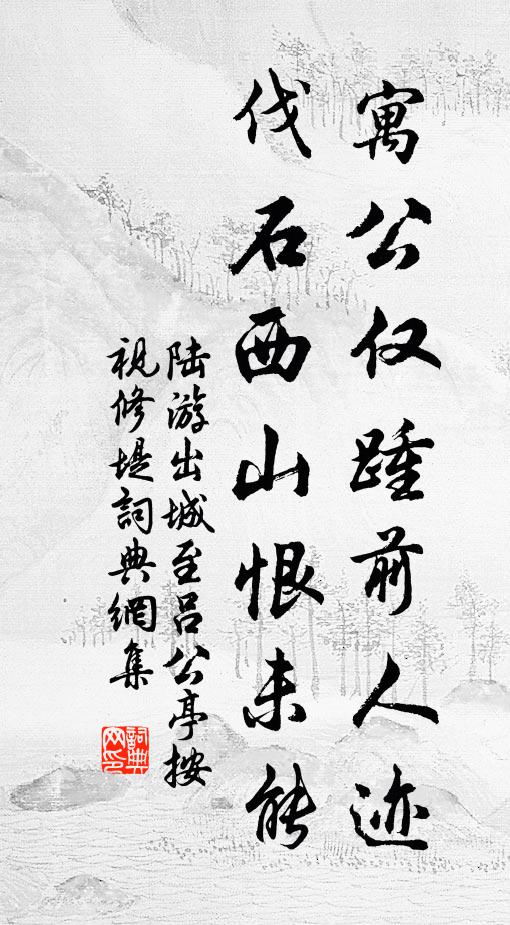 寓公仅踵前人迹
伐石西山恨未能
陆游出城至吕公亭按
视修堤詞典網集
詞典网印